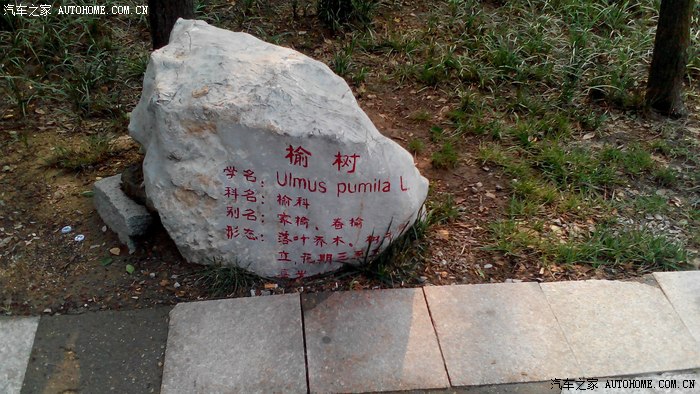 汽车之家 AUTOHOME.COM.CN
汽车之家 AUTOHOME.COM.CN
榆树
学名: Ulmus pumila L.
科名: 榆科
别名: 家榆、春榆
形态: 落叶乔木、树
立,花期三
汽车之家 AUTOHOME.COM.CN